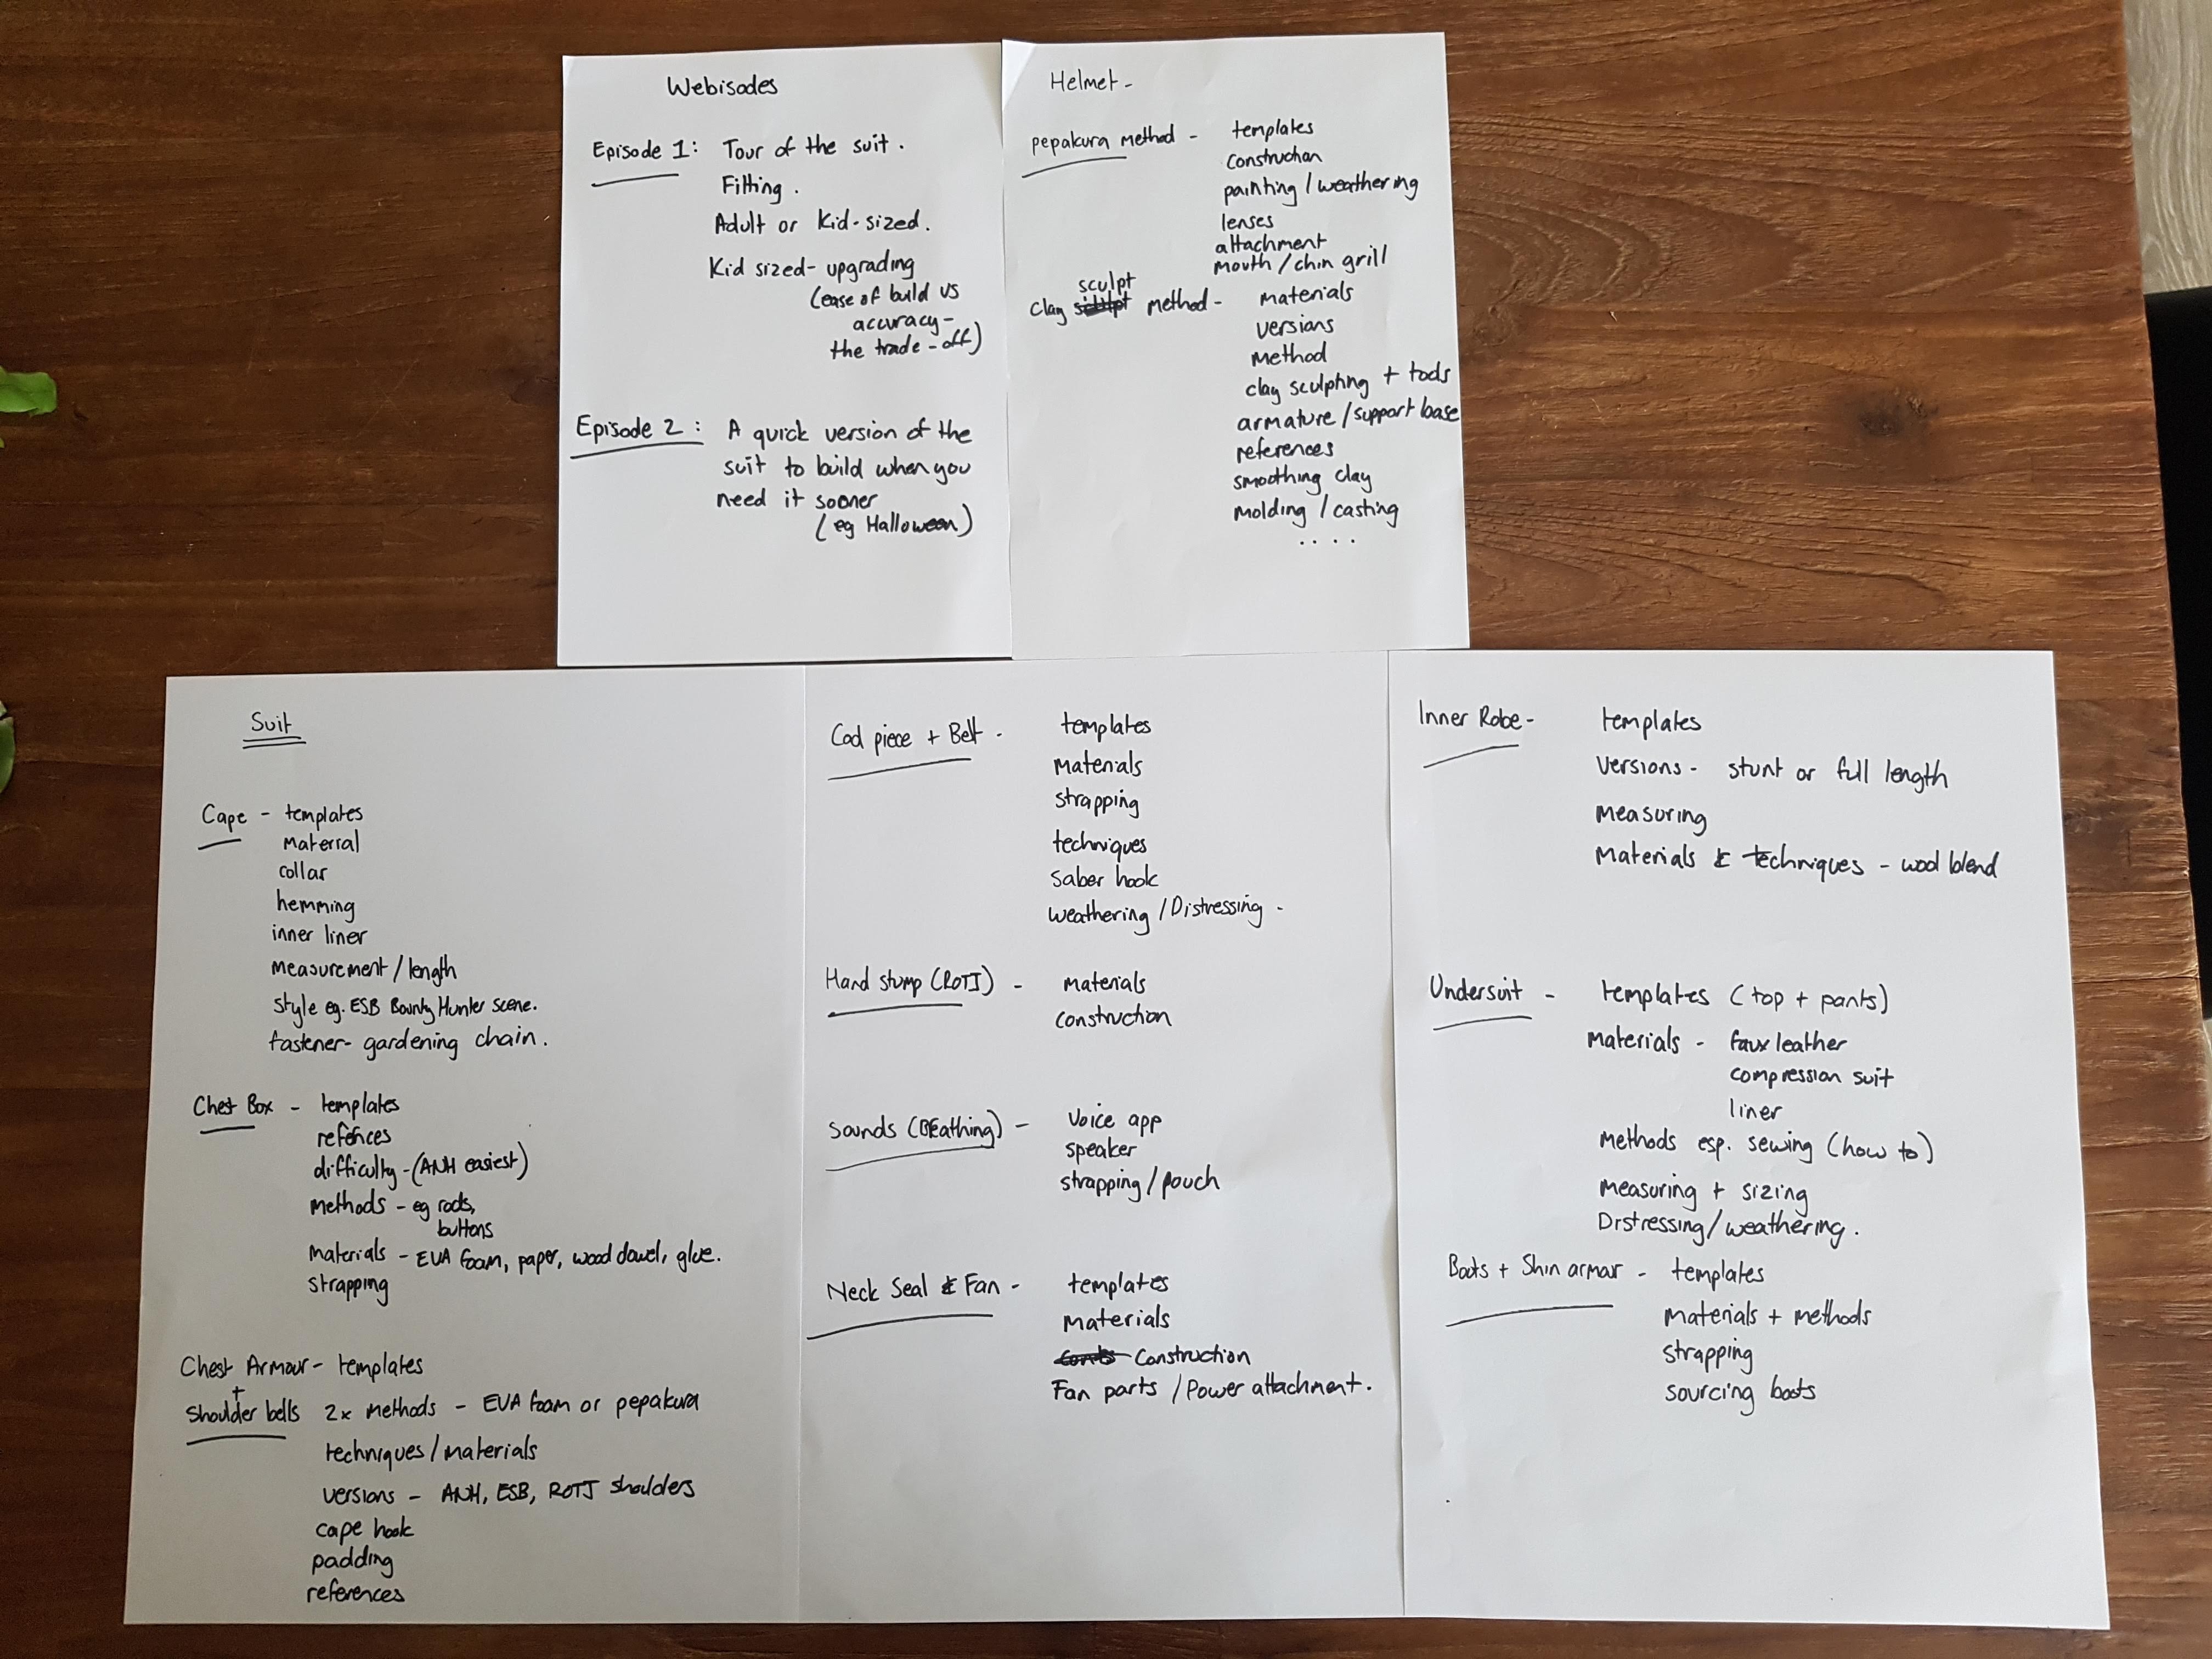 Webisodes
Episode 1: Tour of the suit.
Fitting.
Adult or Kid-sized.
Kid sized- upgrading
(ease of build vs
accuracy-
the trade-off)
Episode 2: A quick version of the
suit to build when you
need it sooner
(eg Halloween)
Helmet-
pepakura method - templates
construction
painting/weathering
lenses
attachment
mouth/chin grill
sculpt
clay method- materials
versions
Method
clay sculpting + tools
armature/support base
references
smoothing clay
molding/casting
....
Suit
Cape - templates
material
collar
hemming
inner liner
measurement/length
style eg. ESB Bounty Hunter scene.
fastener- gardening chain.
Chest Box - templates
refences
difficulty-(ANH easiest)
methods - eg rods,
buttons
materials - EVA foam, paper, wood dowel, glue.
strapping
Chest Armour- templates
+
Shoulder bells 2x methods - EVA foam or pepakura
techniques/materials
versions - ANH, ESB, ROTJ shoulders
cape hook
padding
references
Cod piece + Belt - templates
materials
strapping
techniques
saber hook
weathering/Distressing -
Hand stump (ROTJ) - materials
construction
Sounds (BEathing) - Voice app
speaker
strapping/pouch
Neck Seal & Fan - templates
materials
Construction
Fan parts/Power attachment.
Inner Robe- templates
versions- stunt or full length
measuring
materials & techniques - wool blend
Undersuit - templates (top + pants)
materials - faux leather
compression suit
liner
methods esp. sewing (how to)
measuring + sizing
Distressing/weathering.
Boots + Shin armor - templates
materials + methods
strapping
sourcing boots